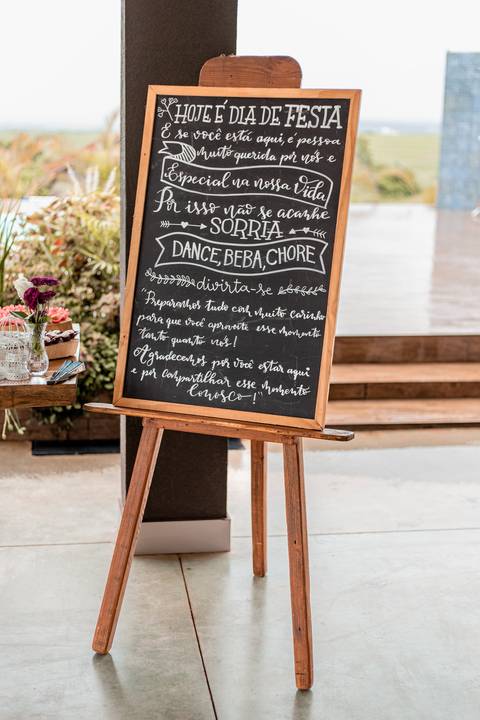 HOJE É DIA DE FESTA
E se você está aqui, é pessoa
muito querida por nós e
Especial na nossa Vida
Por isso não se acanhe
SORRIA
DANCE, BEBA, CHORE
divirta-se
"Preparamos tudo com muito carinho
para que você aproveite esse momento
tanto quanto nós!
Agradecemos por você estar aqui
e por compartilhar esse momento
conosco!"